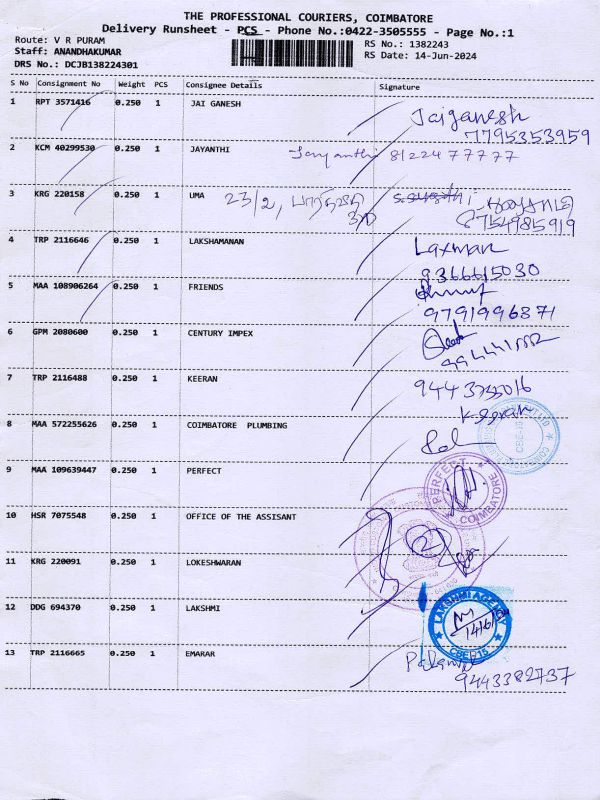 THE PROFESSIONAL COURIERS, COIMBATORE
Delivery Runsheet - PCS - Phone No.:0422-3505555 - Page No.:1
Route: V R PURAM
Staff: ANANDHAKUMAR
DRS No.: DCJB138224301
RS No.: 1382243
RS Date: 14-Jun-2024
S No Consignment No Weight PCS Consignee Details Signature
1 RPT 3571416 0.250 1 JAI GANESH Jaiganesh
7795353959
2 KCM 40299530 0.250 1 JAYANTHI Jayanthi 8122477777
3 KRG 220158 0.250 1 UMA 23/2,
8754985919
4 TRP 2116646 0.250 1 LAKSHAMANAN Laxman
9366615030
5 MAA 108906264 0.250 1 FRIENDS
9791996871
6 GPM 2080600 0.250 1 CENTURY IMPEX
7 TRP 2116488 0.250 1 KEERAN
K-eeran
8 MAA 572255626 0.250 1 COIMBATORE PLUMBING
CBE-15
9 MAA 109639447 0.250 1 PERFECT
PERFECT
COIMBATORE
10 HSR 7075548 0.250 1 OFFICE OF THE ASSISANT
2
11 KRG 220091 0.250 1 LOKESHWARAN
12 DDG 694370 0.250 1 LAKSHMI
LAKSHMI AGENCY
14/6/
CBE-15
13 TRP 2116665 0.250 1 EMARAR
9443382737